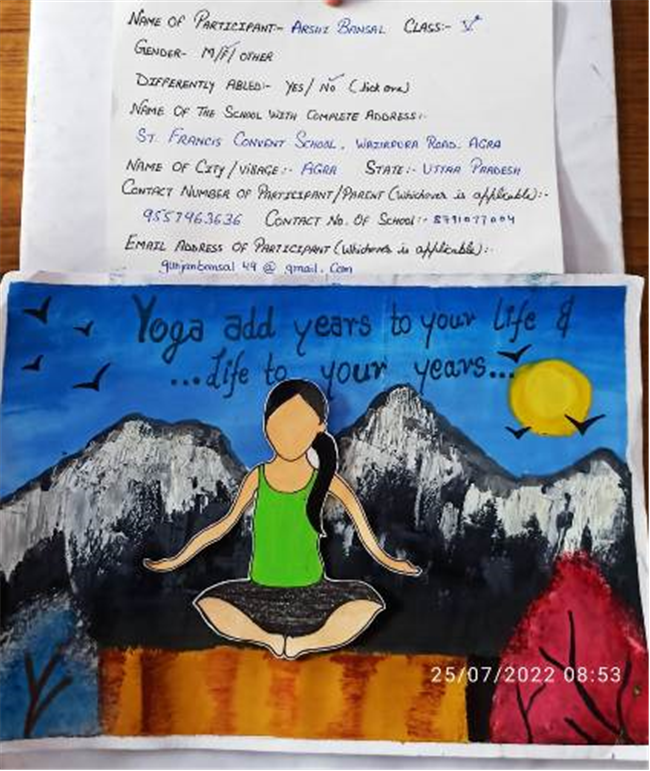 NAME OF PARTICIPANT:- ARSHI BANSAL CLASS:- V
GENDER- M/F/OTHER
DIFFERENTLY ABLED:- YES/NO (tick one)
NAME OF THE SCHOOL WITH COMPLETE ADDRESS:-
ST. FRANCIS CONVENT SCHOOL, WAZIRPURA ROAD. AGRA
NAME OF CITY/VILLAGE:- AGRA STATE:- UTTAR PRADESH
CONTACT NUMBER OF PARTICIPANT/PARENT (Whichever is applicable):-
9557963636 CONTACT NO. OF SCHOOL:-
EMAIL ADDRESS OF PARTICIPANT (Whichever is applicable):-
gunjanbansal 49 @ gmail. Com
Yoga add years to your life &
...Life to your years...
25/07/2022 08:53